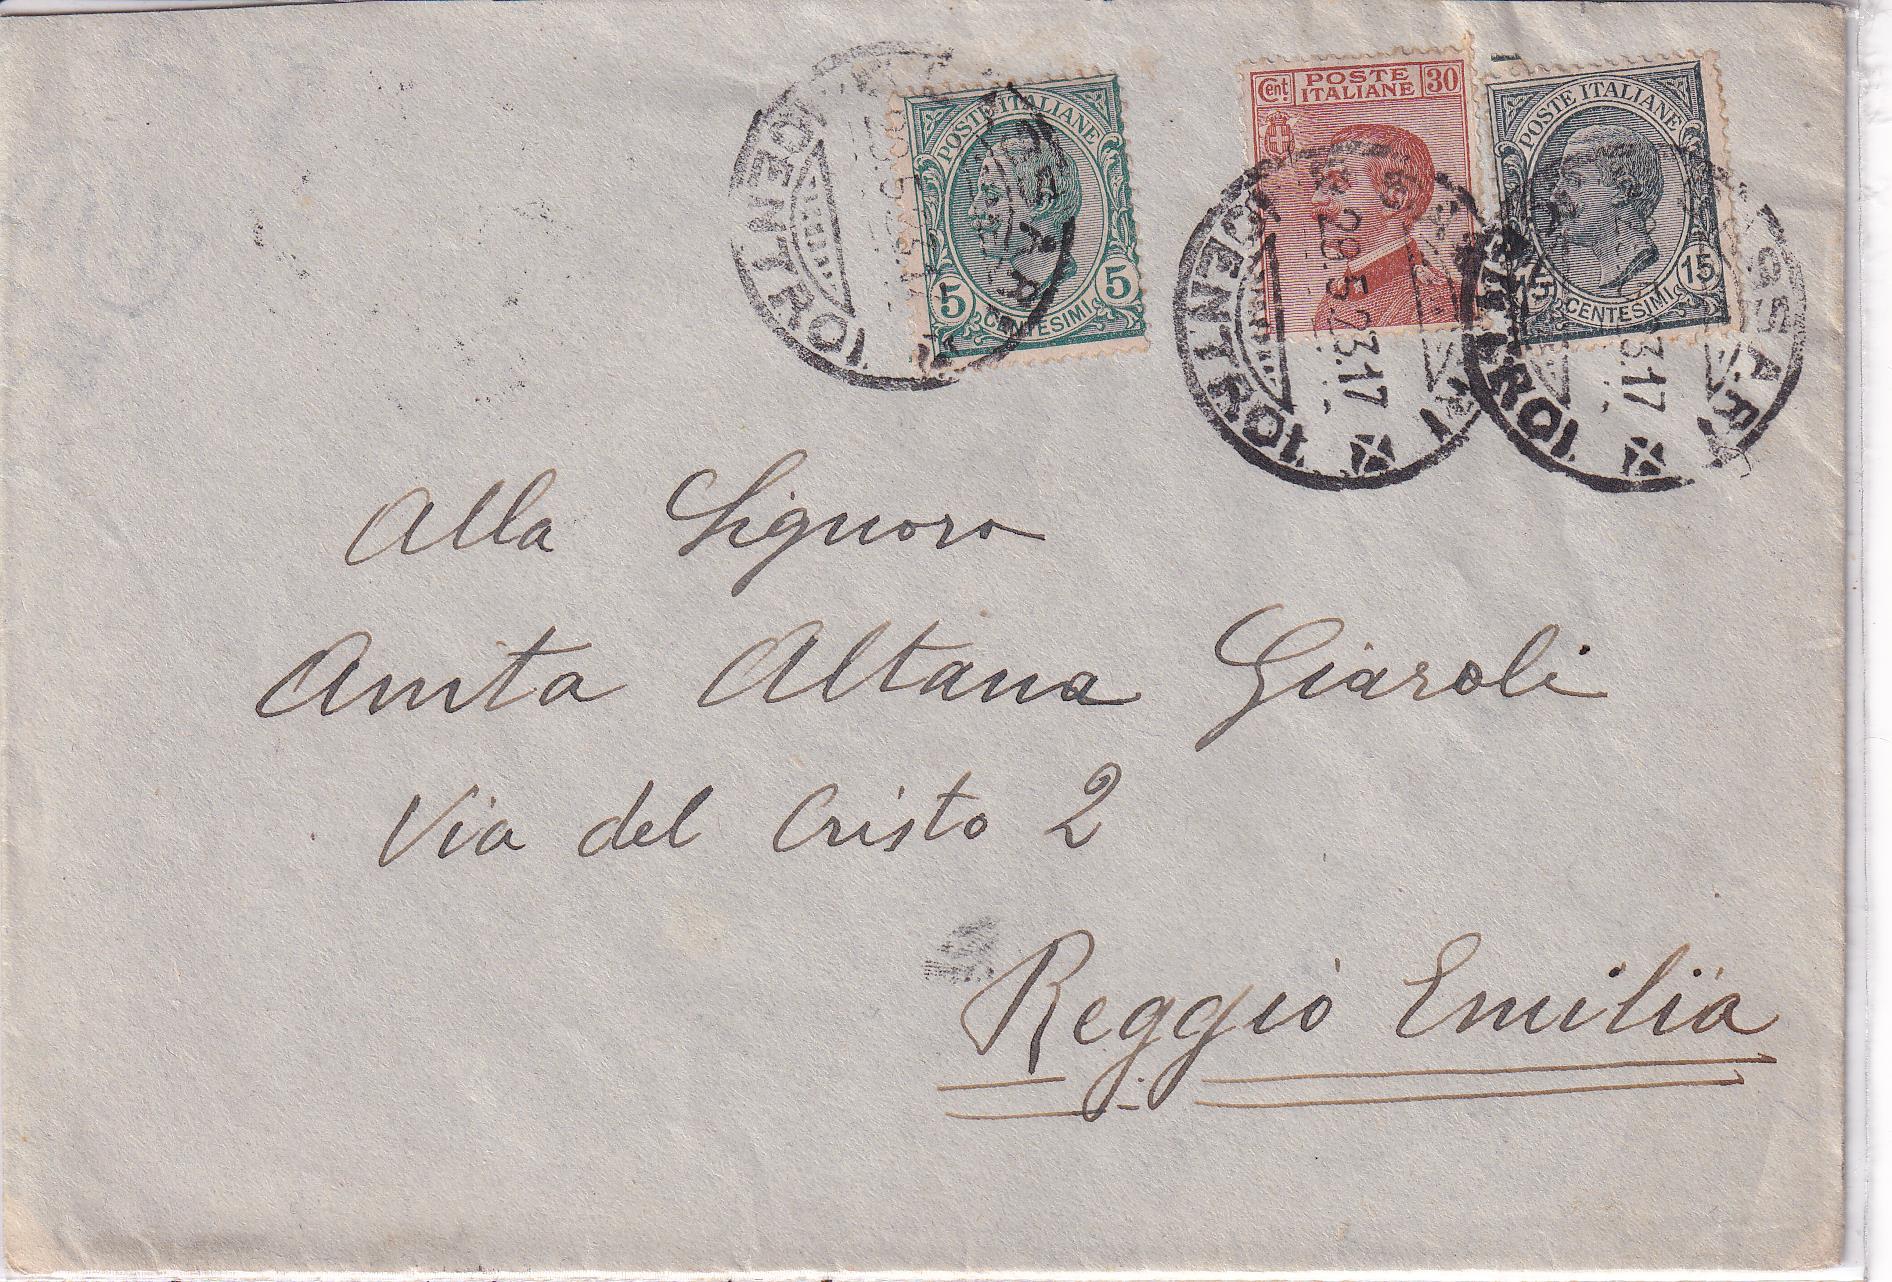 POSTE ITALIANE
5 5
CENTESIMI
Cent. POSTE ITALIANE 30
POSTE ITALIANE
15 15
CENTESIMI
29.5.23.17
(CENTRO)
Alla Signora
Anita Altana Giaroli
Via del Cristo 2
Reggio Emilia